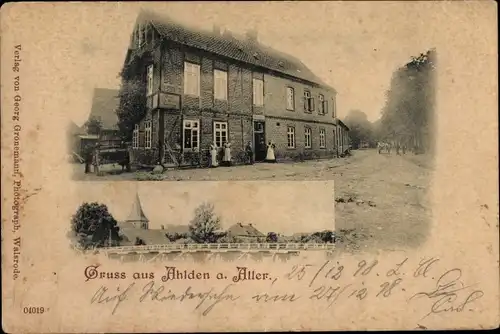 Verlag von Georg Grönemann, Photograph, Walsrode.
Gruss aus Ahlden a. Aller, 25/12 98.
Auf Wiedersehn am 27/12 98
04019